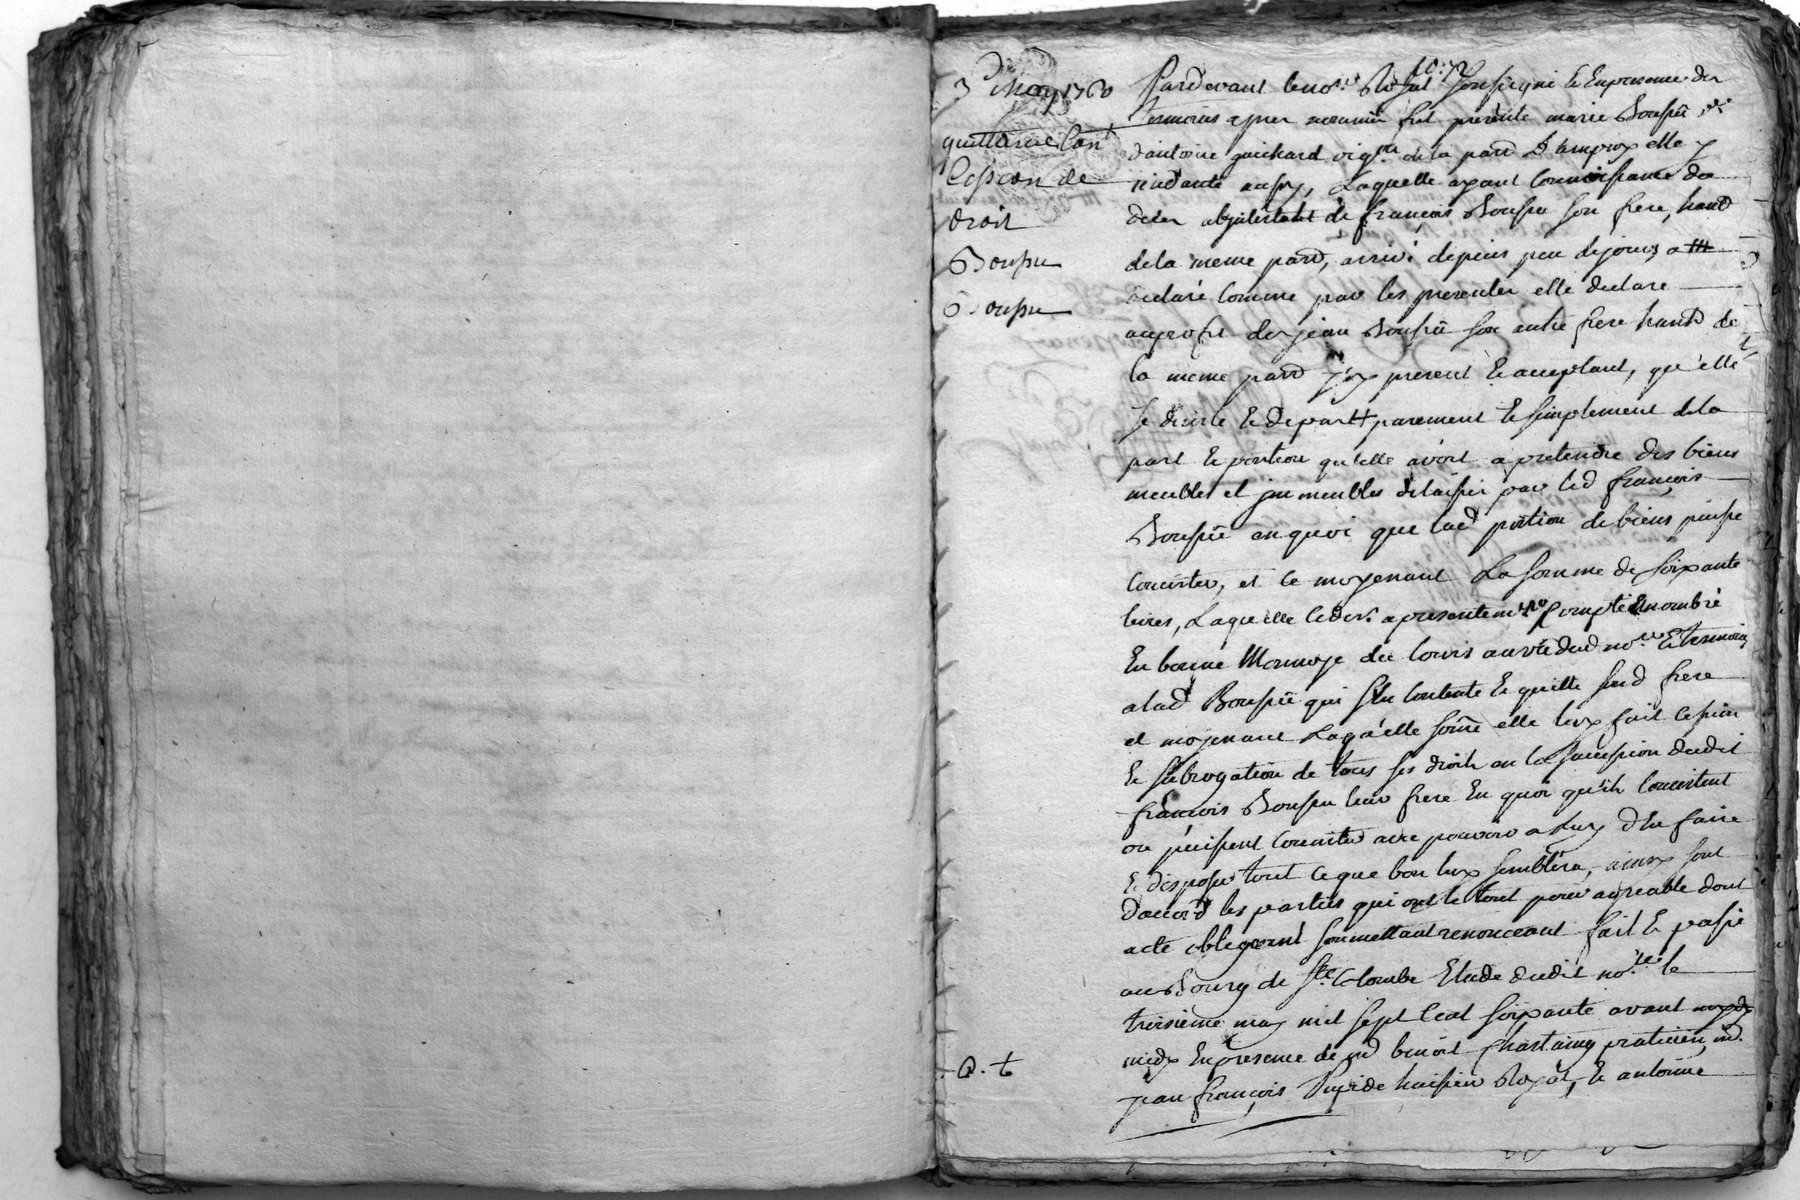 3 may 1760
quittance Con^t
Cession de
droit
Boussu
Boussu
Pardevant le no.^re Royal soussigné Et En presence des
temoins apres nommés fut présente marie Boussû
d'antoine guichard vig.^on de la parr D'ampoix elle y
residante aussy, Laquelle ayant Connoissance du
deces ab de françois Boussu son frere, habt
de la meme parr, arrivé depuis peu de jours, a
declaré Comme par les presentes elle declare
au profit de jean Boussû son autre frere habt de
la meme parr icy present Et acceptant, qu'elle
se desiste Et depart purement Et simplement de la
part Et portion qu'elle avoit a pretendre des biens
meubles et jmmeubles delaissés par led françois
Boussû en quoi que lad portion de biens puisse
Concister, et ce moyenant La somme de soixante
livres, Laquelle led a presentem^t Compté Et nombré
En bonne Monnoye du Cours au vû dud no.^re Et temoins
a lad Boussû qui s'en Contente Et quitte sond frere
et moyenant Laqu'elle somme elle luy fait Cession
Et subrogation de tous ses droits en la succession dudit
françois Boussu leur frere En quoi qu'ils Concistent
ou puissent Concister avec pouvoir a Luy d'En faire
Et disposer tout Ce que bon luy semblera, ainsy sont
d'accord les parties qui ont le tout pour agreable dont
acte obligeant soumettant renonceant fait Et passé
au Bourg de S^te Colombe Etude dudit no.^re le
troisieme may mil sept Cent soixante avant
midy En presence de md benoit Chastaing praticien, md.
jean françois Pupide huissier Royal, Et antoine
Q. t